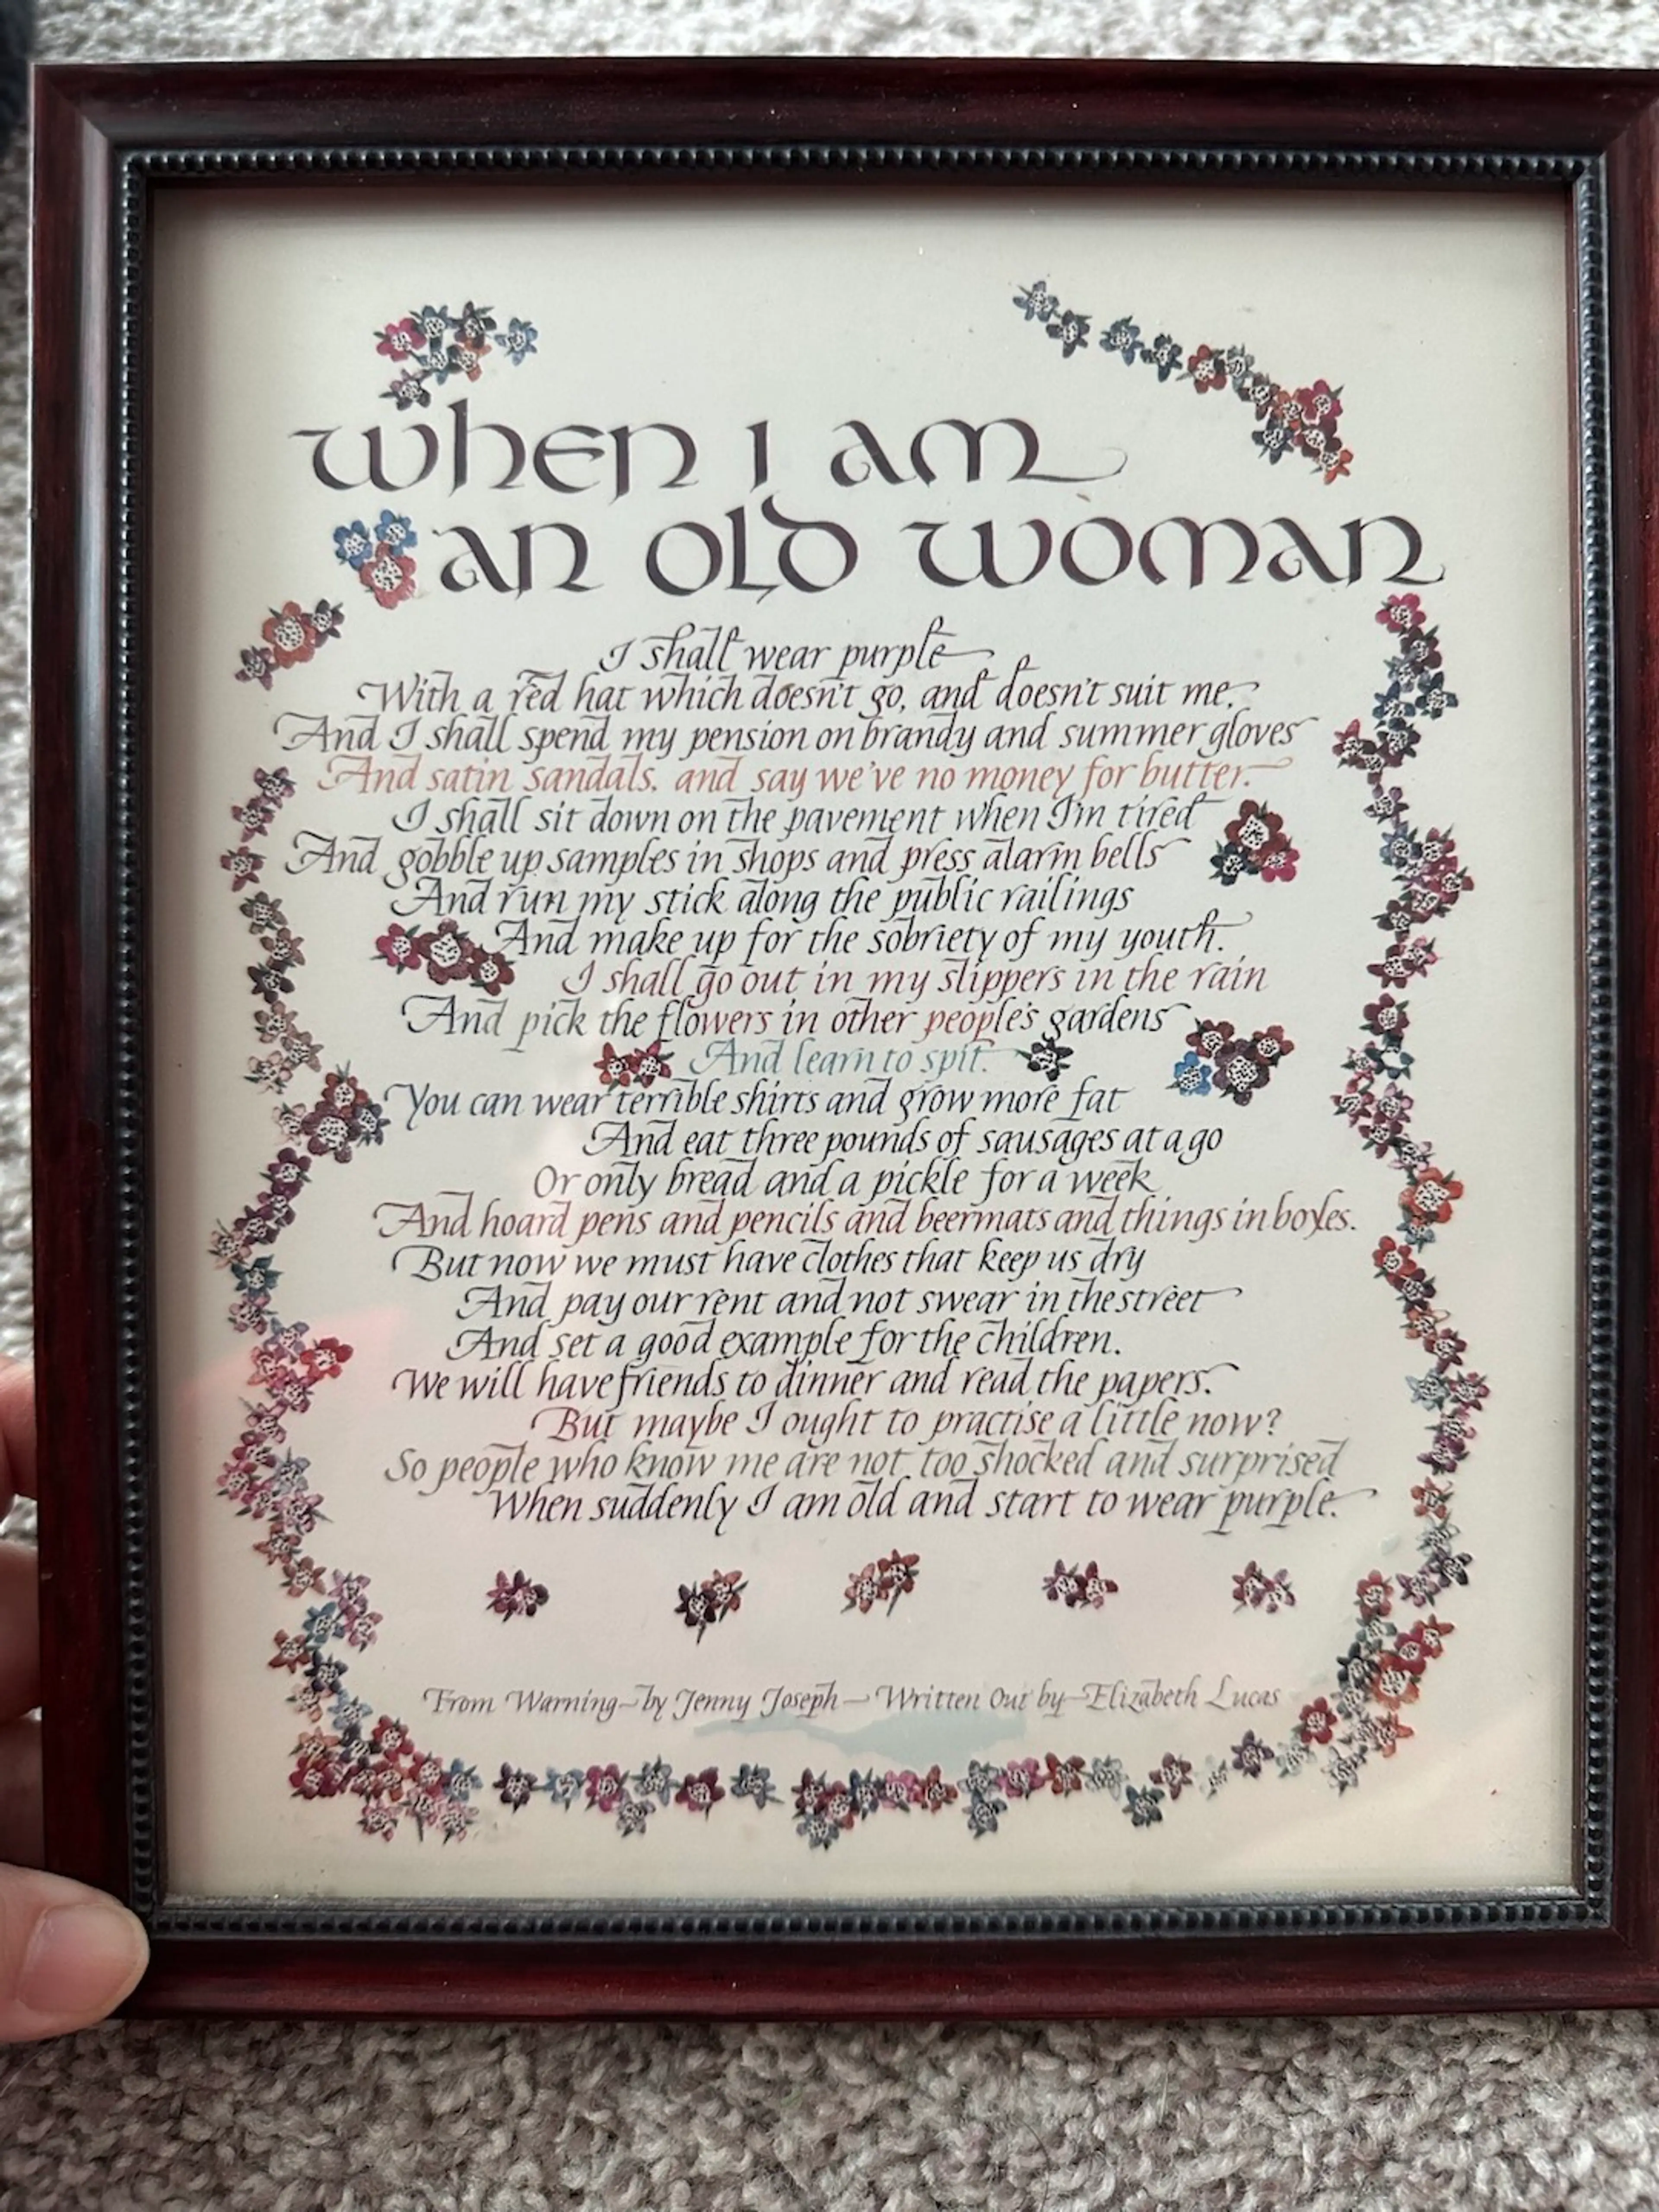 When I am
an old woman
I shall wear purple
With a red hat which doesn't go, and doesn't suit me,
And I shall spend my pension on brandy and summer gloves
And satin sandals, and say we've no money for butter.
I shall sit down on the pavement when I'm tired
And gobble up samples in shops and press alarm bells
And run my stick along the public railings
And make up for the sobriety of my youth.
I shall go out in my slippers in the rain
And pick the flowers in other people's gardens
And learn to spit.
You can wear terrible shirts and grow more fat
And eat three pounds of sausages at a go
Or only bread and a pickle for a week
And hoard pens and pencils and beermats and things in boxes.
But now we must have clothes that keep us dry
And pay our rent and not swear in the street
And set a good example for the children.
We will have friends to dinner and read the papers.
But maybe I ought to practise a little now?
So people who know me are not too shocked and surprised
When suddenly I am old and start to wear purple.
From Warning—by Jenny Joseph—Written Out by—Elizabeth Lucas